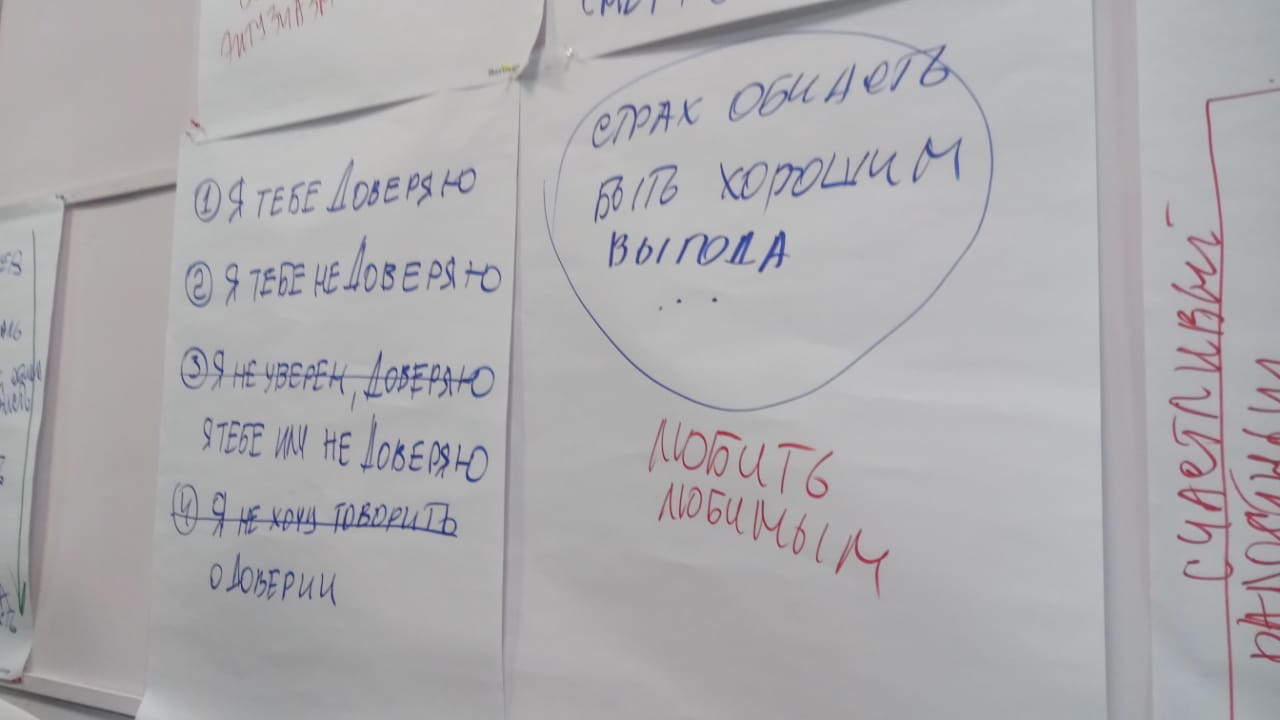 ЭНТУЗИАЗМ
① Я ТЕБЕ ДОВЕРЯЮ
② Я ТЕБЕ НЕ ДОВЕРЯЮ
③ Я НЕ УВЕРЕН, ДОВЕРЯЮ
Я ТЕБЕ ИЛИ НЕ ДОВЕРЯЮ
④ Я НЕ ХОЧУ ГОВОРИТЬ
О ДОВЕРИИ
СТРАХ ОБИДЕТЬ
БЫТЬ ХОРОШИМ
ВЫГОДА
...
ЛЮБИТЬ
ЛЮБИМЫМ
СЧАСТЛИВЫЙ